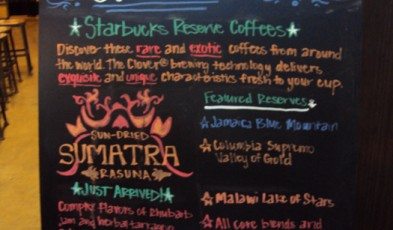 Starbucks Reserve Coffees
Discover these rare and exotic coffees from around
the world. The Clover® brewing technology delivers
exquisite and unique characteristics fresh to your cup.
Featured Reserves
Jamaica Blue Mountain
Columbia Supremo
Valley of Gold
Malawi Lake of Stars
All core blends and
SUN-DRIED
SUMATRA
RASUNA
JUST ARRIVED!
Complex Flavors of Rhubarb
jam and herbal tarragon